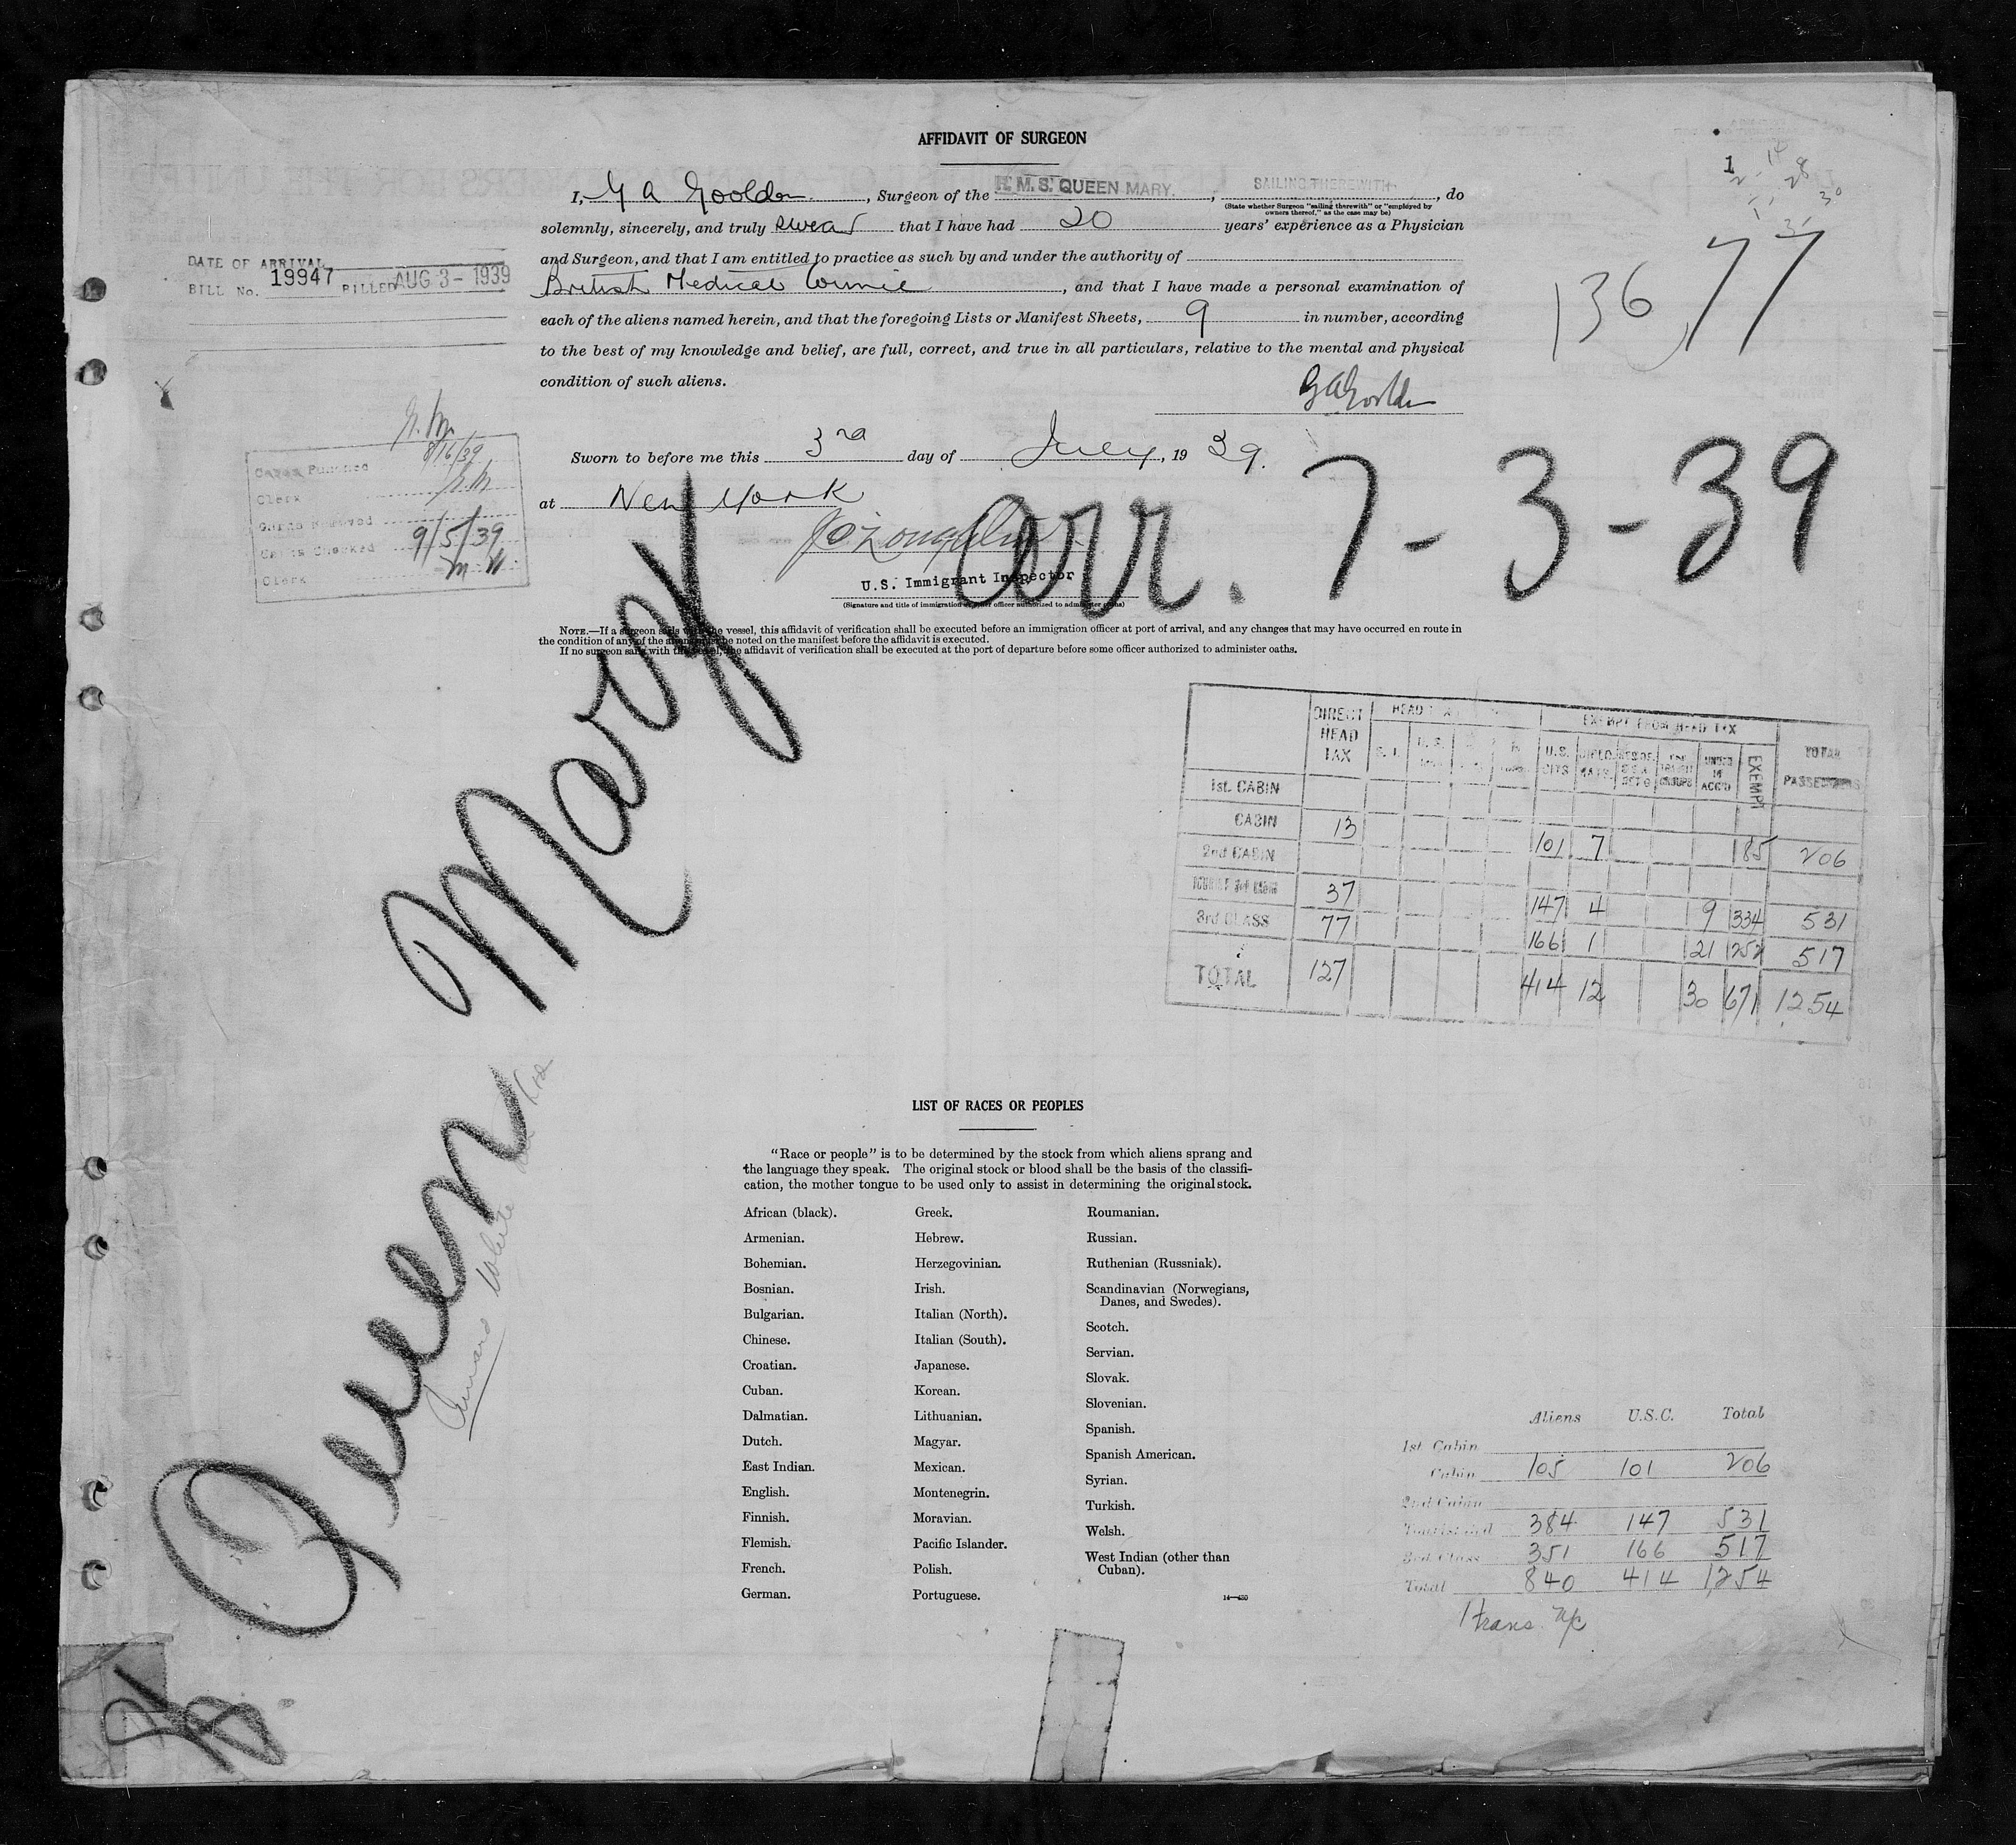 AFFIDAVIT OF SURGEON
1
I, G A Gooldon, Surgeon of the R.M.S. QUEEN MARY., SAILING THEREWITH, do
(State whether Surgeon "sailing therewith" or "employed by
owners thereof," as the case may be)
solemnly, sincerely, and truly swear that I have had 20 years' experience as a Physician
and Surgeon, and that I am entitled to practice as such by and under the authority of
British Medical, and that I have made a personal examination of
each of the aliens named herein, and that the foregoing Lists or Manifest Sheets, 9 in number, according
to the best of my knowledge and belief, are full, correct, and true in all particulars, relative to the mental and physical
condition of such aliens.
DATE OF ARRIVAL
BILL No. 19947 BILLED AUG 3 - 1939
136 77
Sworn to before me this 3rd day of July, 1939.
at New York
arr. 7-3-39
U.S. Immigrant Inspector
(Signature and title of immigration or other officer authorized to administer oaths)
Cards Punched 8/16/39
Clerk
Cards Removed
Cards Checked 9/5/39
Clerk
NOTE.—If a surgeon sails with the vessel, this affidavit of verification shall be executed before an immigration officer at port of arrival, and any changes that may have occurred en route in
the condition of any of the aliens must be noted on the manifest before the affidavit is executed.
If no surgeon sails with the vessel, the affidavit of verification shall be executed at the port of departure before some officer authorized to administer oaths.
Queen Mary
Cunard White Star
DIRECT HEAD TAX
EXEMPT FROM HEAD TAX
U.S. CITS
EXEMPT
TOTAL PASSENGERS
1st. CABIN
CABIN 13 101 7 85 206
2nd CABIN
TOURIST 3rd CABIN 37 147 4 9 334 531
3rd CLASS 77 166 1 21 252 517
TOTAL 127 414 12 30 671 1254
LIST OF RACES OR PEOPLES
"Race or people" is to be determined by the stock from which aliens sprang and
the language they speak. The original stock or blood shall be the basis of the classifi-
cation, the mother tongue to be used only to assist in determining the original stock.
African (black).
Armenian.
Bohemian.
Bosnian.
Bulgarian.
Chinese.
Croatian.
Cuban.
Dalmatian.
Dutch.
East Indian.
English.
Finnish.
Flemish.
French.
German.
Greek.
Hebrew.
Herzegovinian.
Irish.
Italian (North).
Italian (South).
Japanese.
Korean.
Lithuanian.
Magyar.
Mexican.
Montenegrin.
Moravian.
Pacific Islander.
Polish.
Portuguese.
Roumanian.
Russian.
Ruthenian (Russniak).
Scandinavian (Norwegians,
Danes, and Swedes).
Scotch.
Servian.
Slovak.
Slovenian.
Spanish.
Spanish American.
Syrian.
Turkish.
Welsh.
West Indian (other than
Cuban).
14—430
Aliens U.S.C. Total
1st Cabin
Cabin 105 101 206
2nd Cabin
Tourist 3rd 384 147 531
3rd Class 351 166 517
Total 840 414 1,254
1 trans.